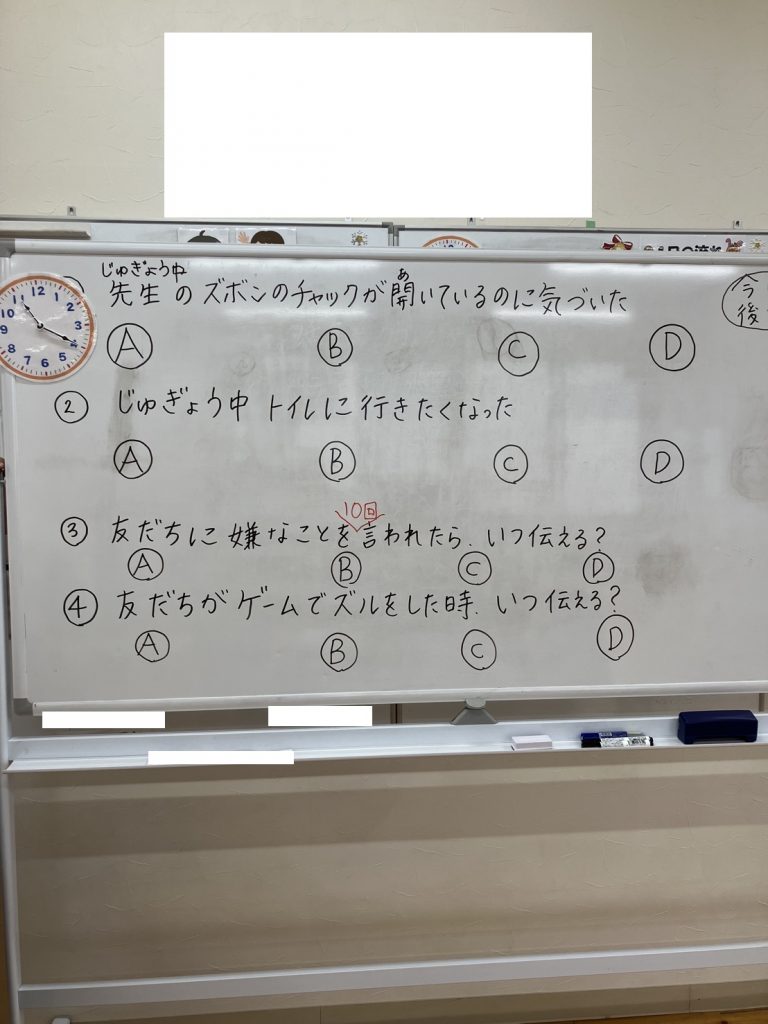 の1日の流れ
12
1
2
3
4
5
6
7
8
9
10
11
じゅぎょう中
先生のズボンのチャックが開いているのに気づいた
あ
今
後
A B C D
② じゅぎょう中 トイレに行きたくなった
A B C D
10回
③ 友だちに嫌なことを言われたら、いつ伝える?
A B C D
④ 友だちがゲームでズルをした時、いつ伝える?
A B C D